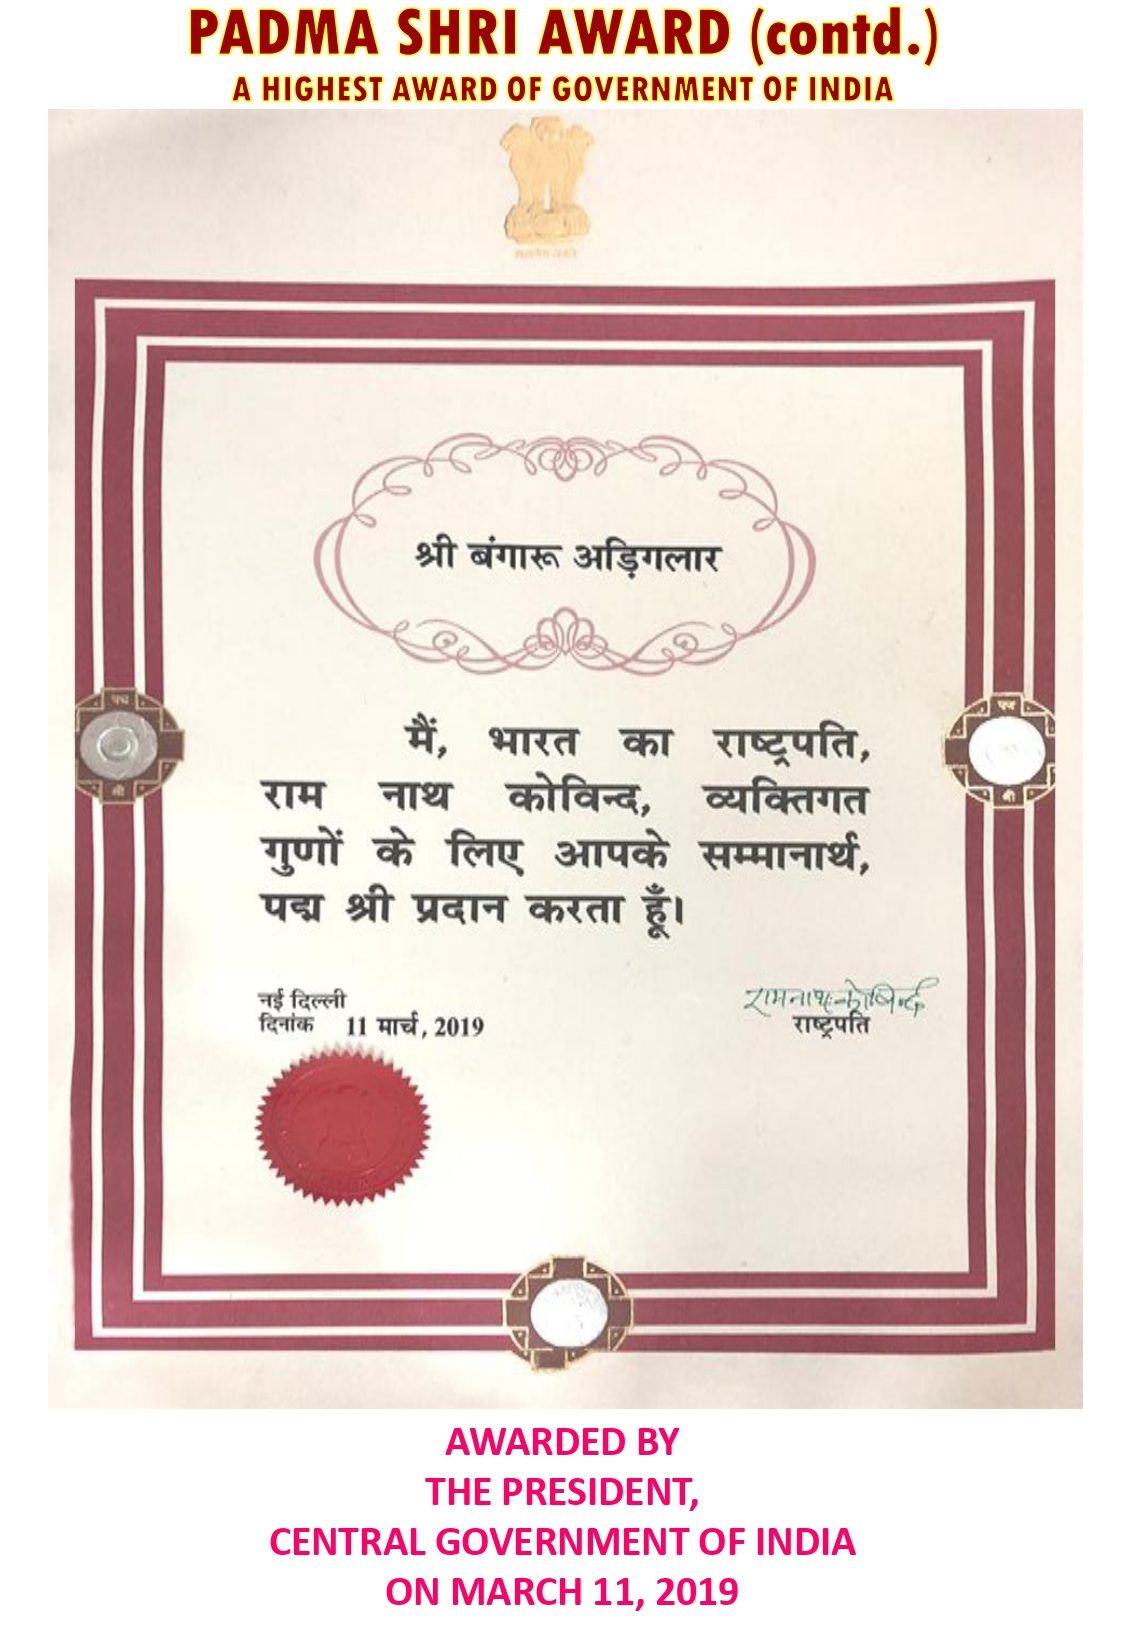 PADMA SHRI AWARD (contd.)
A HIGHEST AWARD OF GOVERNMENT OF INDIA
श्री बंगारू अड़िगलार
मैं, भारत का राष्ट्रपति,
राम नाथ कोविन्द, व्यक्तिगत
गुणों के लिए आपके सम्मानार्थ,
पद्म श्री प्रदान करता हूँ।
नई दिल्ली
दिनांक 11 मार्च, 2019
रामनाथ कोविन्द
राष्ट्रपति
पद्म
श्री
पद्म
श्री
AWARDED BY
THE PRESIDENT,
CENTRAL GOVERNMENT OF INDIA
ON MARCH 11, 2019